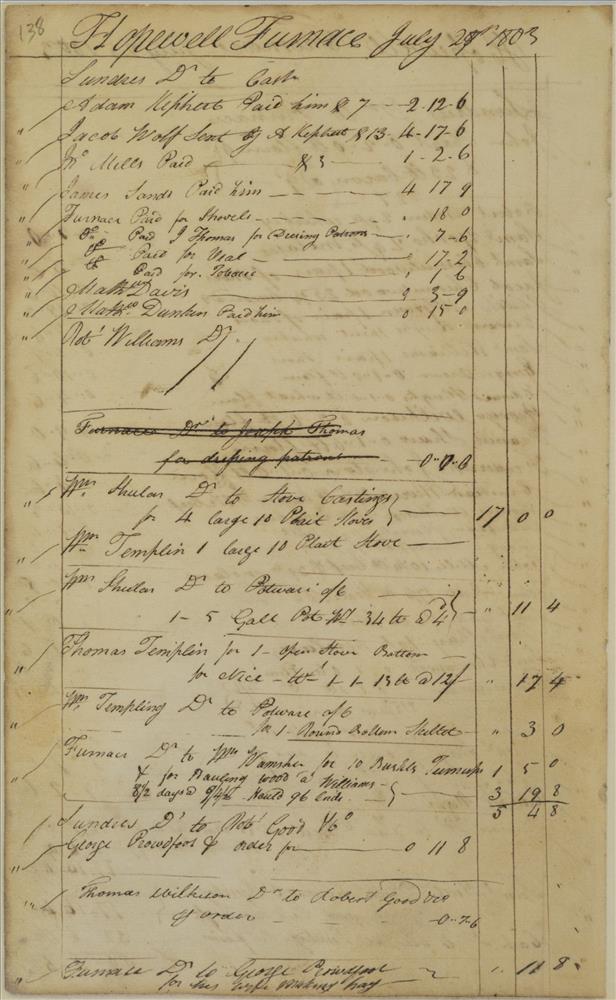 138
Hopewell Furnace July 28th 1803
Sundres Dr to Cash
Adam Kephert Paid him $ 7 2-12-6
Jacob Wolf Sent by A Kephert $ 13 4-17-6
Jno Mills Paid $ 3 1-2-6
James Sands Paid him 4 17 9
Furnace Paid for Shovels 18 0
Do Paid J Thomas for Dressing Patrons 7-6
Do Paid for Veal 17-2
Do Paid for Tobacco 1 6
Davis 0 3-9
Dunkin Paid him 0 15 0
Robt Williams Dr
Furnace Dr to Joseph Thomas
for dressing patrons 0-7-6
Wm Shulas Dr to Stove Castings
for 4 large 10 Plait Stoves 17 0 0
Wm Templin 1 large 10 Plait Stove
Wm Shulas Dr to Potware
1-5 Gall Pot Wt 34 lb a 4 11 4
Thomas Templin for 1 open Stove Bottom
for Nice Wt 1-1-13 lb a 12/ 17 4
Wm Templing Dr to Potware
for 1 Round Bottom Skillet 3 0
Furnace Dr to Wm Wamsher for 10 Bushls Turnips 1 5 0
& for Hauling wood a Williams
8 1/2 days Hauld 96 Cords 3 19 8
5 4 8
Sundres Dr to Robt Good
George Prowdfoot order for 0 11 8
Thomas Wilkison Dr to Robert Good
order 0-7-6
Furnace Dr to George Prowdfoot
for his wife making hay 11 8